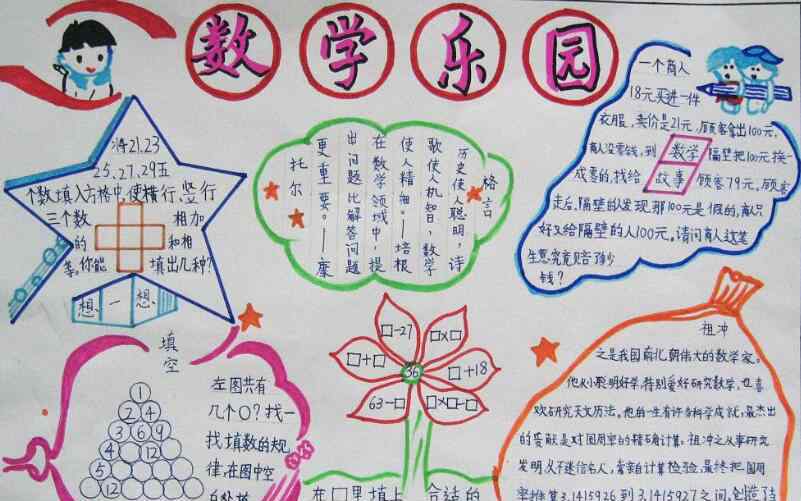 数学乐园
将21.23
25.27.29五
个数填入方格中,使横行、竖行
三个数 相加
的 和相
等。你能 填出几种?
想一想
格言
历史使人聪明,诗
歌使人机智,数学
使人精细。——培根
在数学领域中,提
出问题比解答问题
更重要。——康
托尔
一个商人
18元买进一件
衣服,卖价是21元,顾客拿出100元,
商人没零钱,到 隔壁把100元换一
成零的,找给 顾客79元,顾客
数学
故事
走后,隔壁的发现那100元是假的,商人只
好又给隔壁的人100元。请问商人这笔
生意究竟赔多少
钱?
填空
左图共有
几个○?找一
找填数的规
律,在图中空
1
2 4
3 6 9
4 12
5
12
□-27
□×□
□+□
36
□+18
63-□
□×□-□
在□里填上 合适的
祖冲
之是我国前北朝伟大的数学家。
他从小聪明好学,特别爱好研究数学,也喜
欢研究天文历法。他的一生有许多科学成就,最杰出
的贡献是对圆周率的精确计算,祖冲之从事研究
发明,从不迷信名人,靠亲自计算检验,最终把圆周
率推算3.1415926到3.1415927之间,创造了